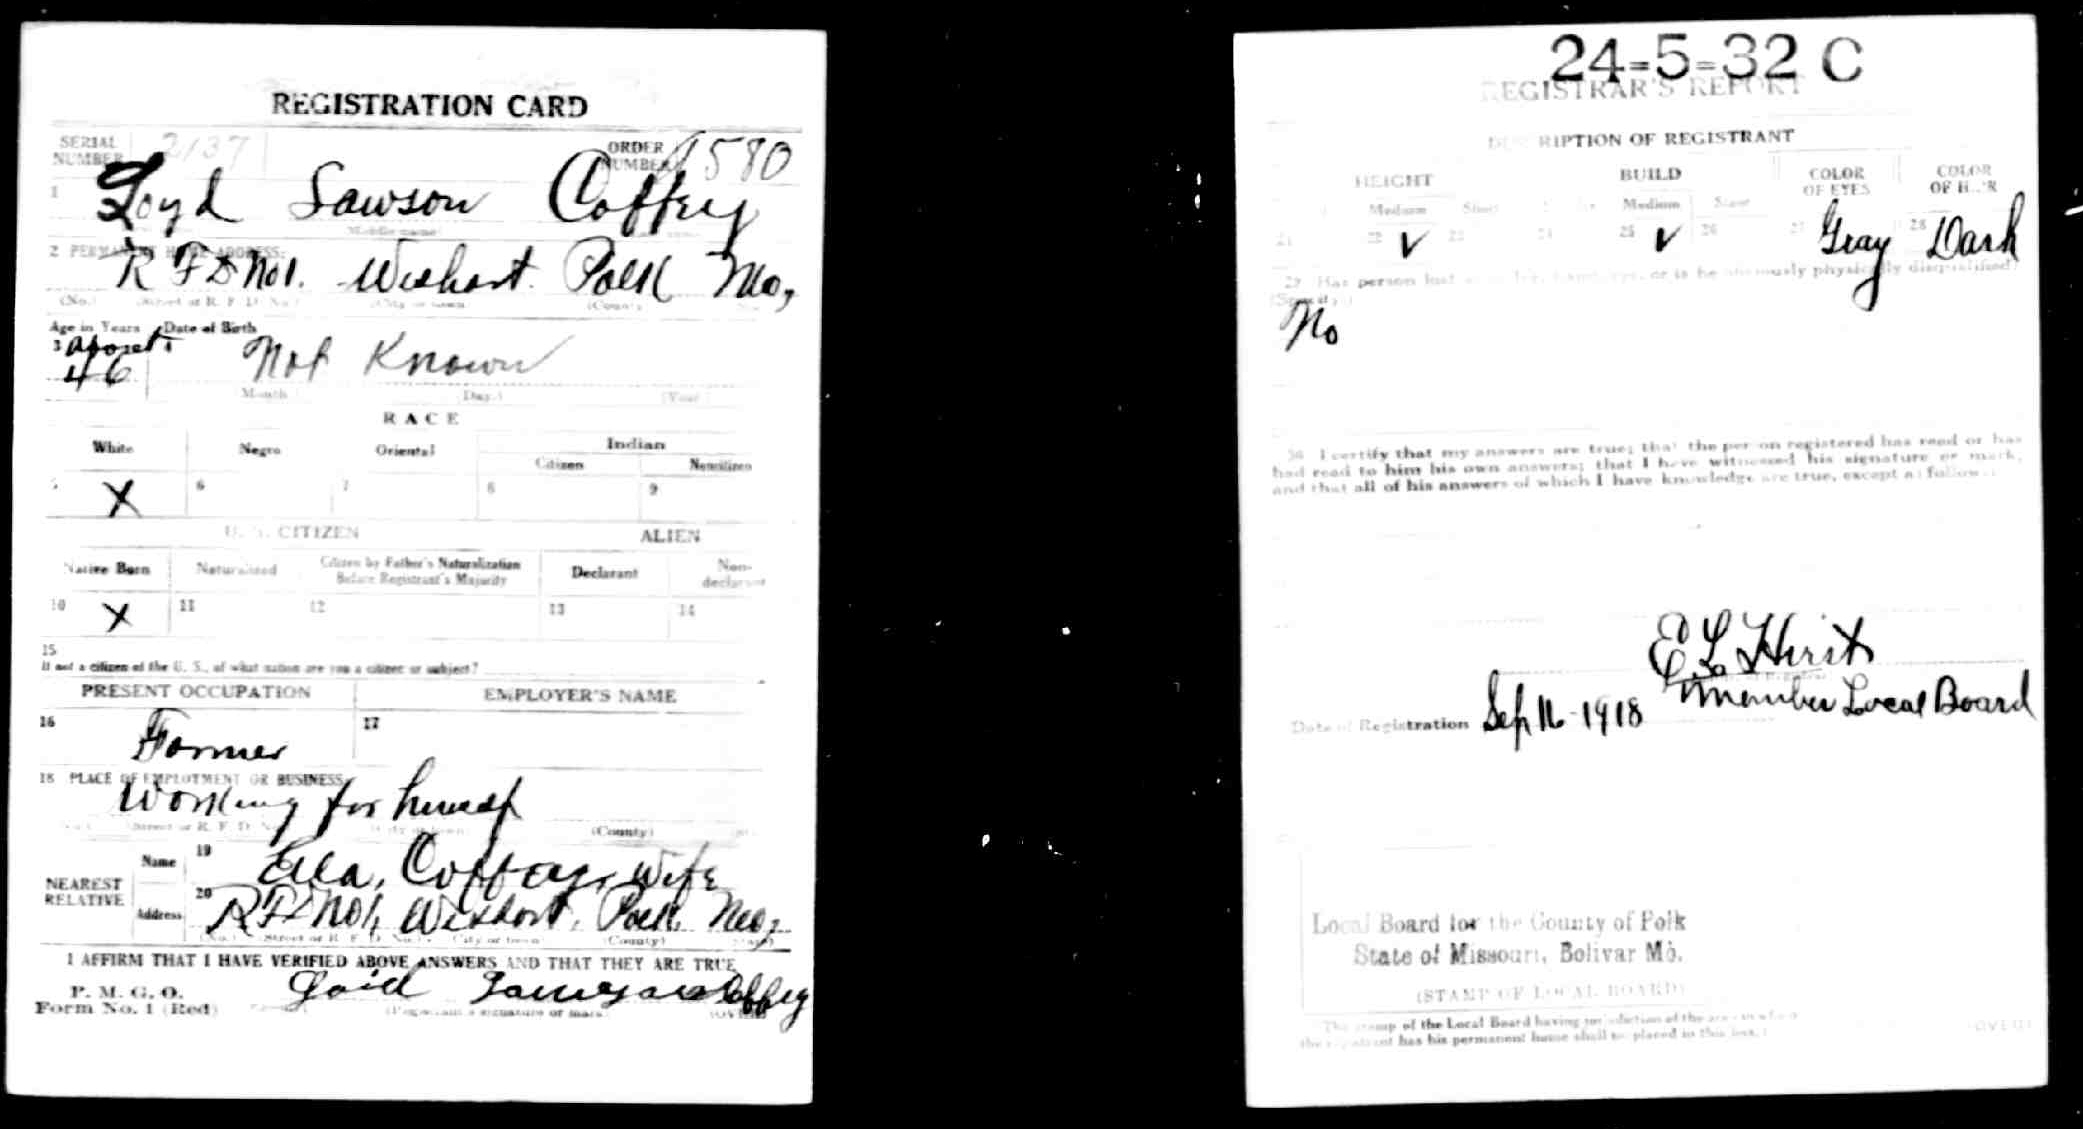 REGISTRATION CARD
SERIAL NUMBER 2137
ORDER NUMBER 1580
1 Loyd Lawson Coffey
(Middle name)
2 PERMANENT HOME ADDRESS:
R F D No1. Wishart Polk Mo,
(No.) (Street or R. F. D. No.) (City or town) (County)
Age in Years Date of Birth
3 About 46 Not Known
(Month) (Day.) (Year)
RACE
White Negro Oriental Indian
Citizen Noncitizen
5 X 6 7 8 9
U. S. CITIZEN ALIEN
Native Born Naturalized Citizen by Father's Naturalization Before Registrant's Majority Declarant Non-declarant
10 X 11 12 13 14
15
If not a citizen of the U. S., of what nation are you a citizen or subject?
PRESENT OCCUPATION EMPLOYER'S NAME
16 Farmer 17
18 PLACE OF EMPLOYMENT OR BUSINESS
Working for himself
(Street or R. F. D. No.) (City or town) (County)
NEAREST RELATIVE
Name 19 Coffey, Wife
Address 20 R F D No1, Wishart, Polk, Mo,
(No.) (Street or R. F. D. No.) (City or town) (County) (State)
I AFFIRM THAT I HAVE VERIFIED ABOVE ANSWERS AND THAT THEY ARE TRUE
P. M. G. O.
Form No. 1 (Red) Coffey
(Registrant's signature or mark) (OVER)
24-5-32 C
REGISTRAR'S REPORT
DESCRIPTION OF REGISTRANT
HEIGHT BUILD COLOR OF EYES COLOR OF HAIR
Medium Short Medium Stout
21 22 V 23 24 25 V 26 27 Gray 28 Dark
29 Has person lost or is he obviously physically disqualified?
(Specify.)
No
30 I certify that my answers are true; that the person registered has read or has
had read to him his own answers; that I have witnessed his signature or mark,
and that all of his answers of which I have knowledge are true, except as follows:
E L Hirst
Member Local Board
Date of Registration Sep 16-1918
Local Board for the County of Polk
State of Missouri, Bolivar Mo.
(STAMP OF LOCAL BOARD)
The stamp of the Local Board having jurisdiction of the area in which
the registrant has his permanent home shall be placed in this box.)
(OVER)